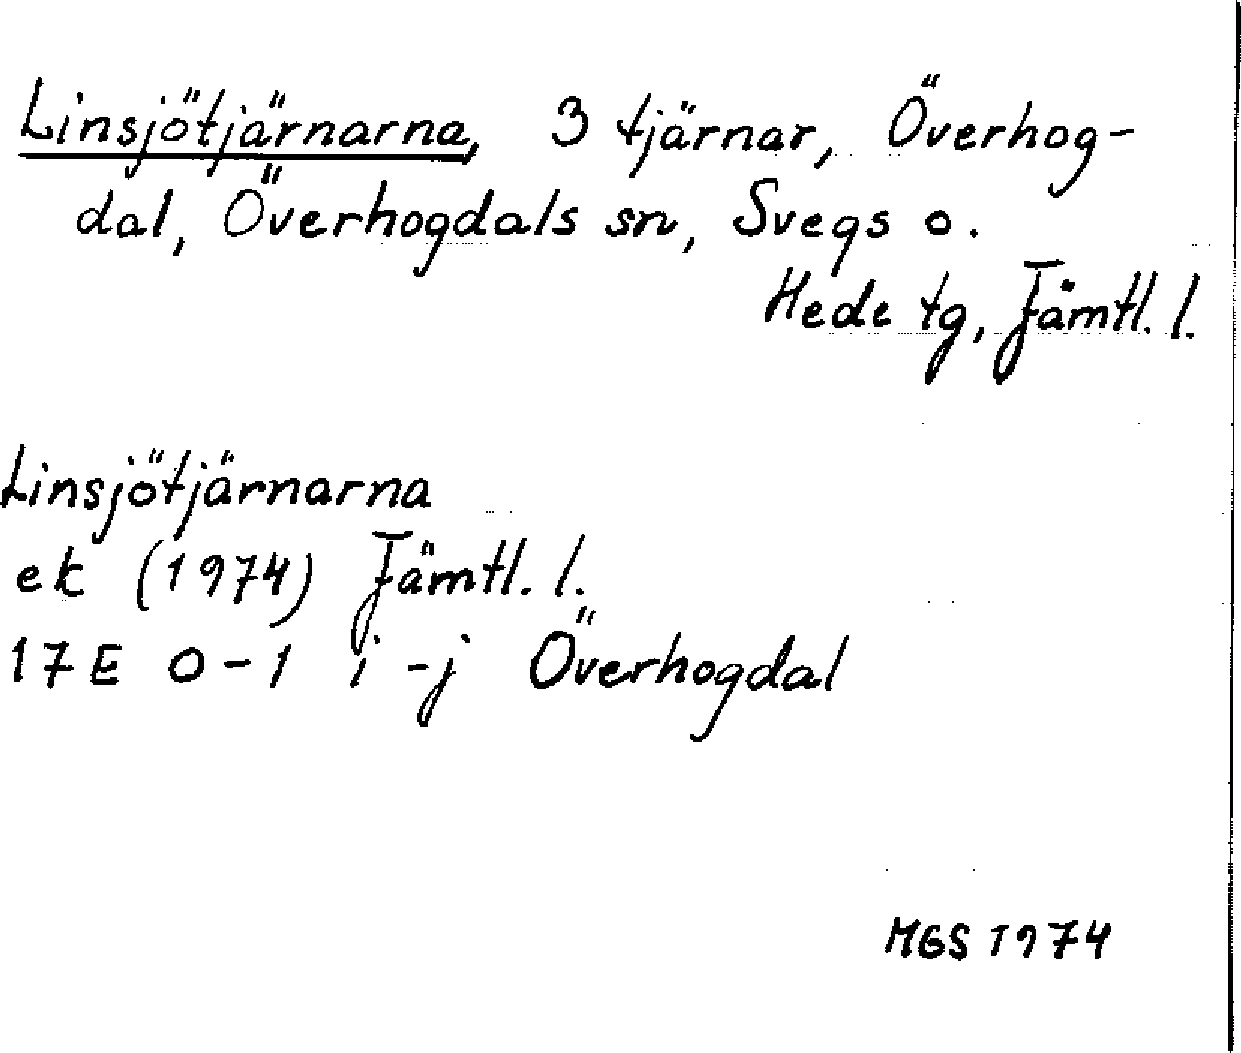 Linsjötjärnarna, 3 tjärnar, Överhog-
dal, Överhogdals sn, Svegs o.
Hede tg, Jämtl. l.
Linsjötjärnarna
ek (1974) Jämtl. l.
17E 0-1 i-j Överhogdal
MGS 1974